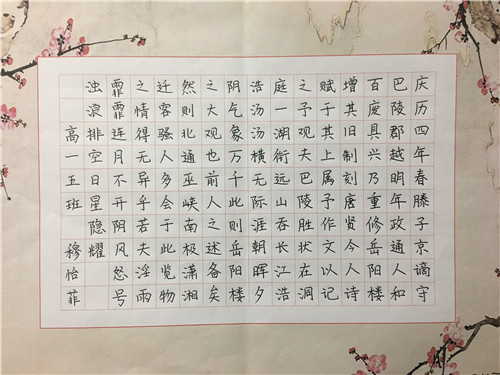 庆历四年春滕子京谪守
巴陵郡越明年政通人和
百废具兴乃重修岳阳楼
增其旧制刻唐贤今人诗
赋于其上属予作文以记
之予观夫巴陵胜状在洞
庭一湖衔远山吞长江浩
浩汤汤横无际涯朝晖夕
阴气象万千此则岳阳楼
之大观也前人之述备矣
然则北通巫峡南极潇湘
迁客骚人多会于此览物
之情得无异乎若夫淫雨
霏霏连月不开阴风怒号
浊浪排空日星隐耀
高一五班 穆怡菲